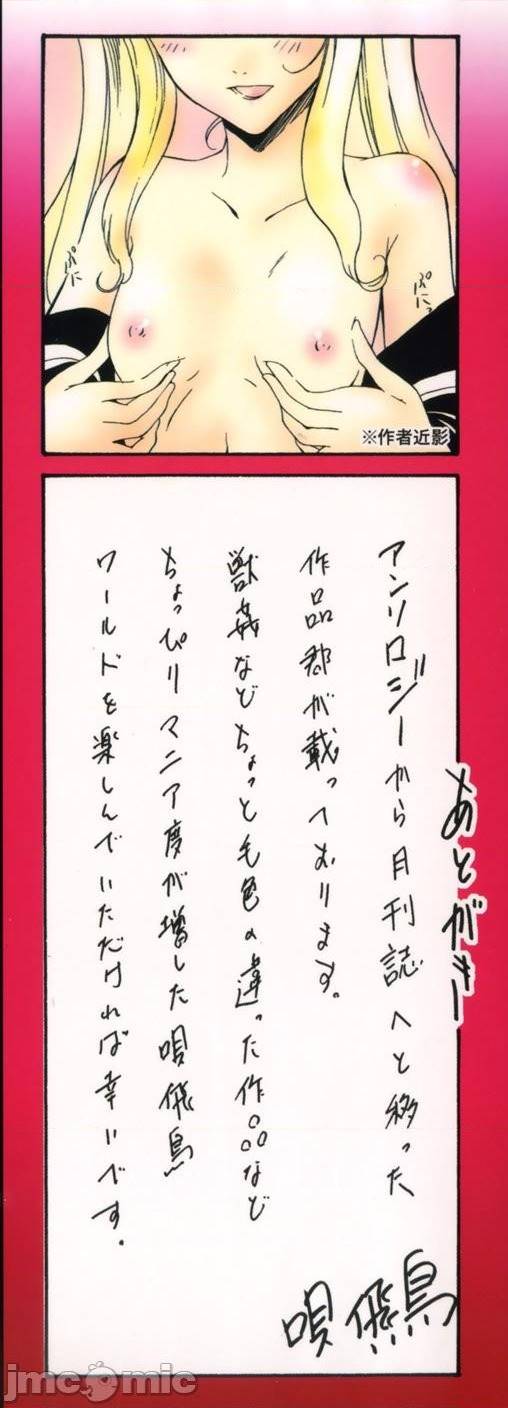 ぷに
ぷにっ
※作者近影
あとがきー
アンソロジーから月刊誌へと移った
作品郡が載っております。
獣姦などちょっと毛色の違った作品など
ちょっぴりマニア度が増した唄飛鳥
ワールドを楽しんでいただければ幸いです。
唄飛鳥
jmcomic